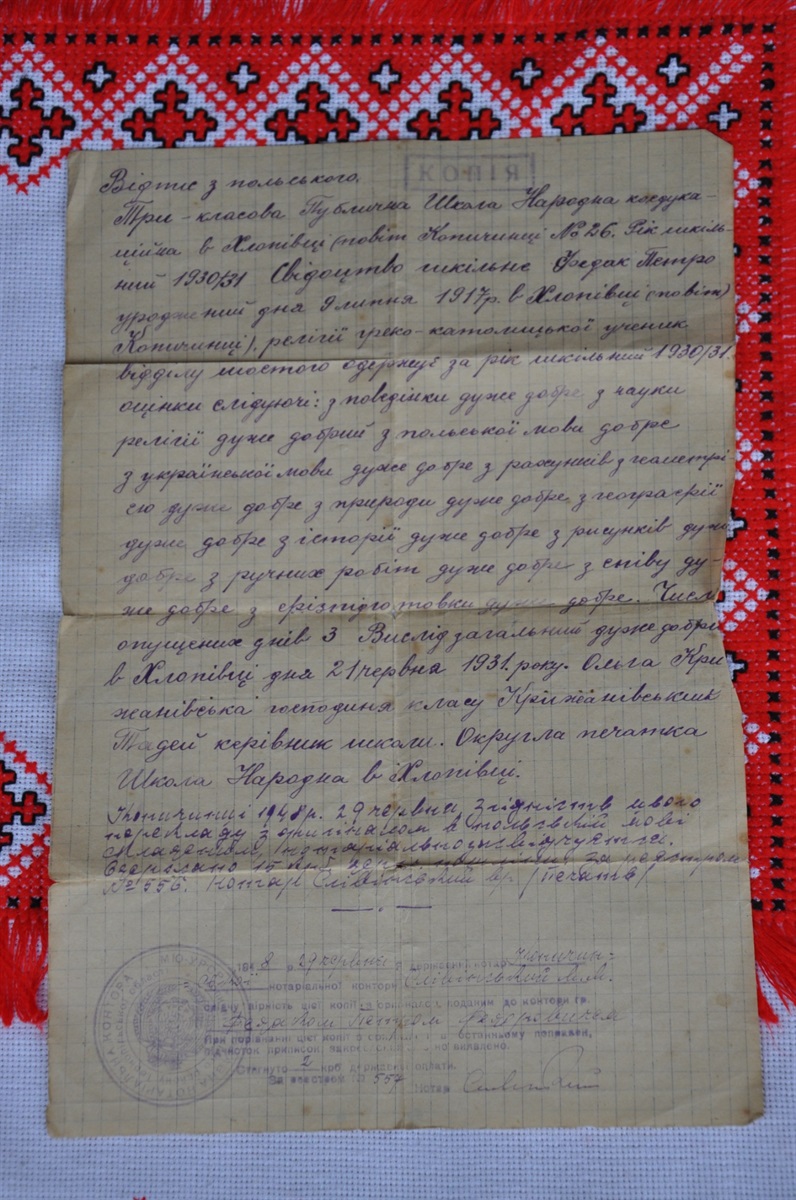 КОПІЯ
Відпис з польського.
Три-класова Публична Школа Народна коедука-
ційна в Хлопівці (повіт Копичинці № 26. Рік шкіль-
ний 1930/31 Свідоцтво шкільне Федак Петро
уроджений дня 9 липня 1917р. в Хлопівці (повіт)
Копичинці), релігії греко-католицької ученик
відділу шостого одержує за рік шкільний 1930/31.
оцінки слідуючі: з поведінки дуже добре з науки
релігії дуже добрий з польської мови добре
з української мови дуже добре з рахунків з геометрі-
єю дуже добре з природи дуже добре з географії
дуже добре з історії дуже добре з рисунків дуже
добре з ручних робіт дуже добре з співу ду-
же добре з фізпідготовки дуже добре. Число
опущених днів 3 Вислід загальний дуже добрий
в Хлопівці дня 21 червня 1931. року. Ольга Кри
жанівська господиня класу Крижанівський
Тадей керівник школи. Округла печатка
Школа Народна в Хлопівці.
Копичинці 1948р. 29 червня, згідність цього
перекладу з оригіналом в польській мові
нотаріально
15 крб за реєстром
№ 556. Нотар Слівінський вр /Печать/
1948 р. 29 червня я державний нотар Копичин-
нотаріальної контори Слівінський
свідчу вірність цієї копії з оригіналом, поданим до контори гр.
Федаком Петром Федоровичем
При порівнянні цієї копії з останньому поправок,
підчисток приписок не виявлено.
Стягнуто 2 крб державної оплати.
За реєстром № 557 Нотар